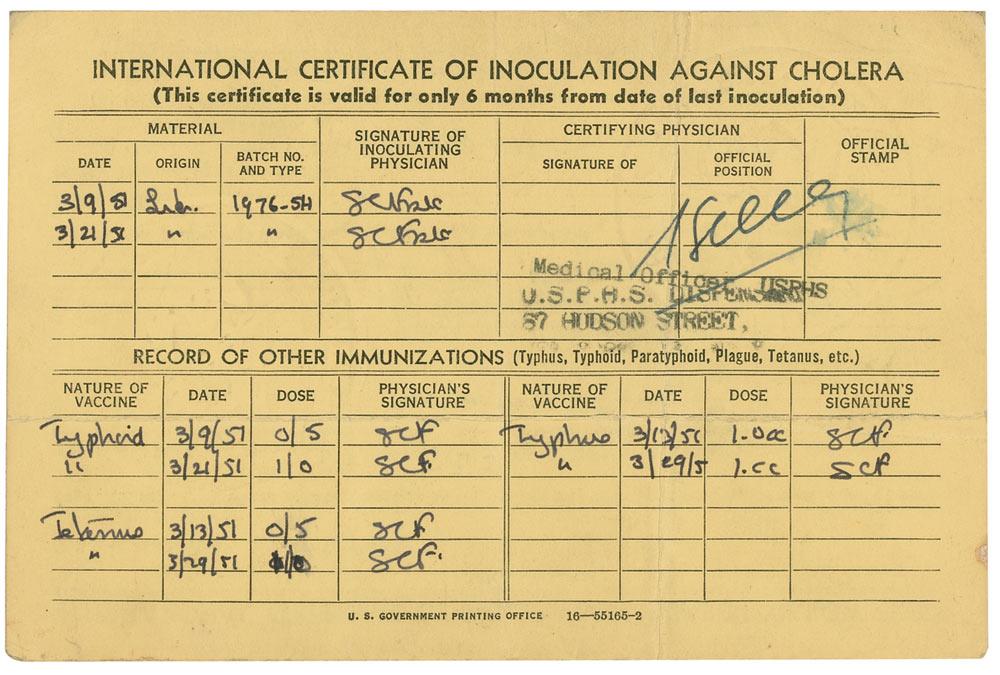 INTERNATIONAL CERTIFICATE OF INOCULATION AGAINST CHOLERA
(This certificate is valid for only 6 months from date of last inoculation)
MATERIAL SIGNATURE OF INOCULATING PHYSICIAN CERTIFYING PHYSICIAN OFFICIAL STAMP
DATE ORIGIN BATCH NO. AND TYPE SIGNATURE OF OFFICIAL POSITION
3/9/51 1976-54
3/21/51 " "
Medical Officer, USPHS
U.S.P.H.S. DISPENSARY
67 HUDSON STREET,
RECORD OF OTHER IMMUNIZATIONS (Typhus, Typhoid, Paratyphoid, Plague, Tetanus, etc.)
NATURE OF VACCINE DATE DOSE PHYSICIAN'S SIGNATURE NATURE OF VACCINE DATE DOSE PHYSICIAN'S SIGNATURE
Typhoid 3/9/51 0/5 SCF Typhus 3/13/51 1.0cc SCF
" 3/21/51 1/0 SCF " 3/29/5 1.cc SCF
Tetanus 3/13/51 0/5 SCF
" 3/29/51 SCF
U. S. GOVERNMENT PRINTING OFFICE 16—55165-2